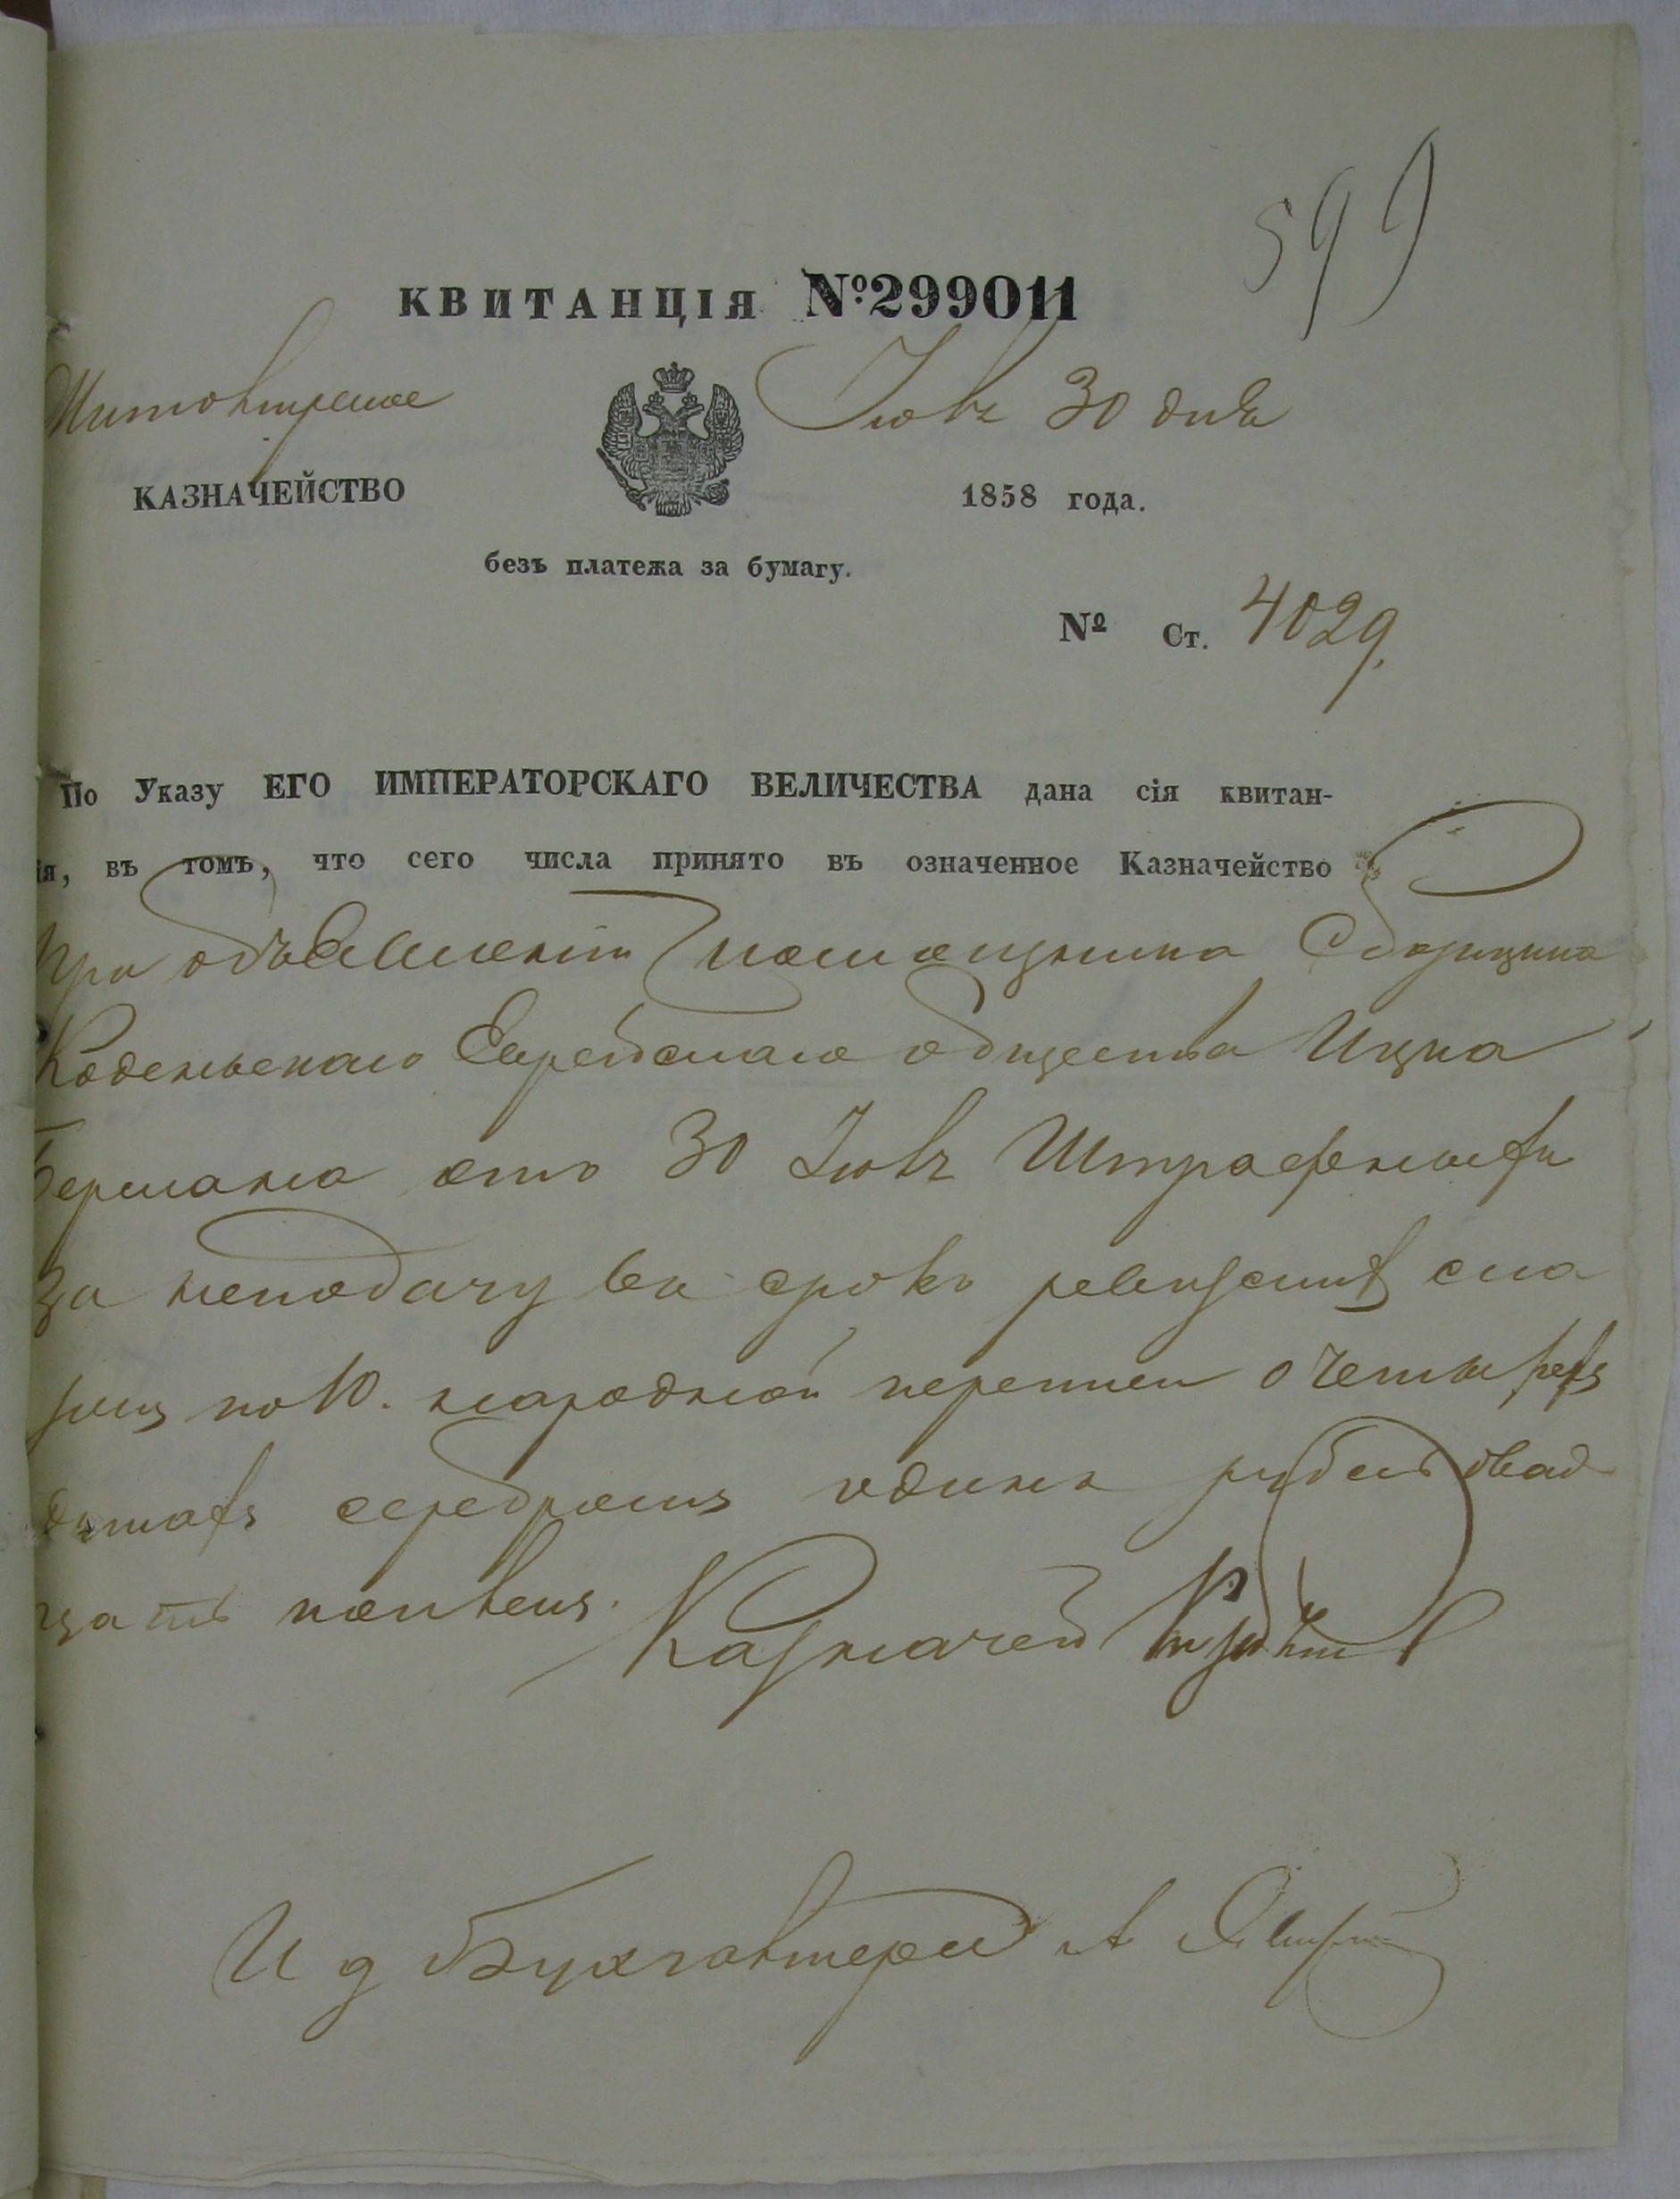 599
КВИТАНЦІЯ №299011
Житомирское
Іюля 30 дня
КАЗНАЧЕЙСТВО
1858 года.
безъ платежа за бумагу.
№ Ст. 4029.
По Указу ЕГО ИМПЕРАТОРСКАГО ВЕЛИЧЕСТВА дана сія квитан-
ія, въ томъ, что сего числа принято въ означенное Казначейство
При объявленіи помощника Сборщика
Коденьскаго Еврейскаго общества Ицка
Бермана отъ 30 Іюля Штрафныхъ
за неподачу въ срокъ ревизскихъ ска
зокъ по 10. народной переписи о четырехъ
душахъ серебромъ одинъ рубль двад
цать копѣекъ.
Казначей
И д Бухгалтера А